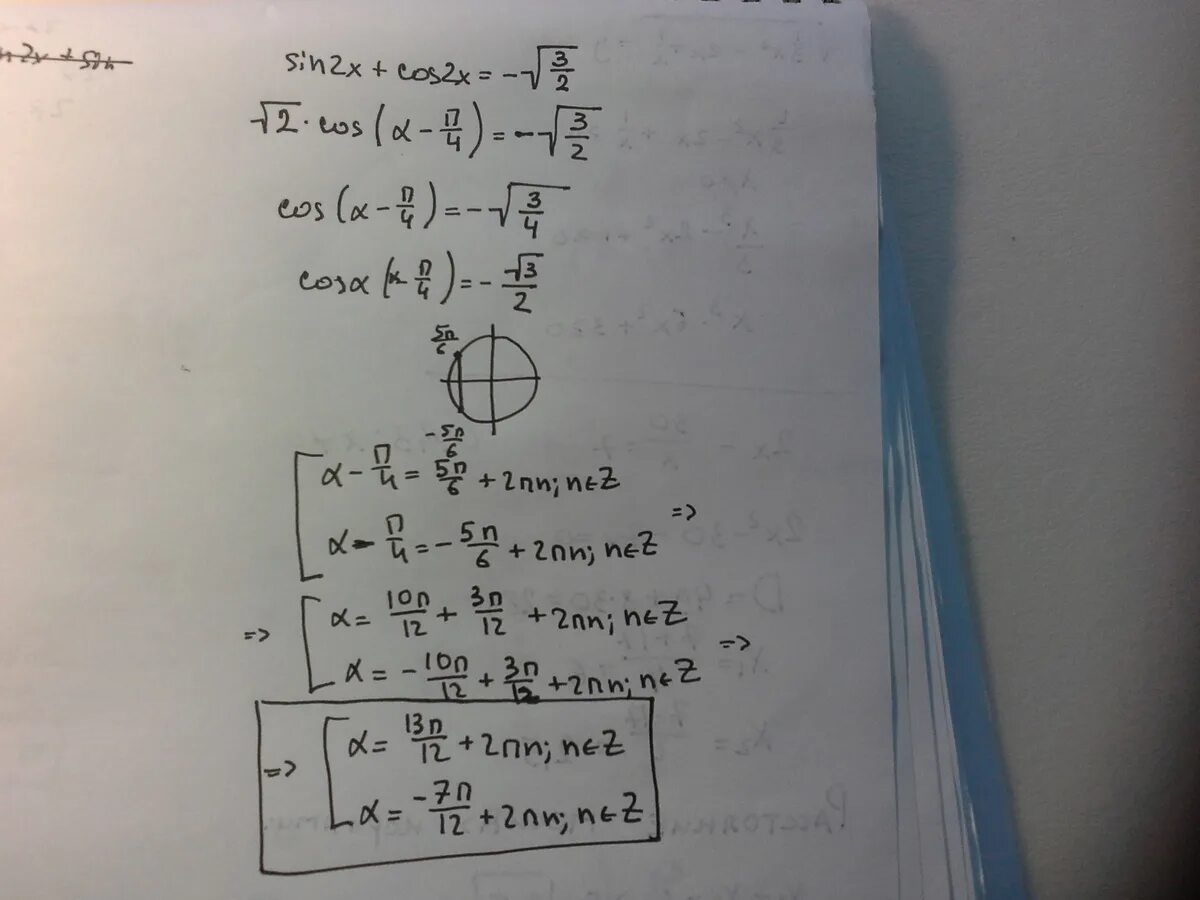 sin2x + cos2x = -√(3/2)
√2 · cos(α - π/4) = -√(3/2)
cos(α - π/4) = -√(3/4)
cosα(α - π/4) = -√3/2
5π/6
-5π/6
[ α - π/4 = 5π/6 + 2πn; n∈Z
α - π/4 = -5π/6 + 2πn; n∈Z =>
=> [ α = 10π/12 + 3π/12 + 2πn; n∈Z
α = -10π/12 + 3π/12 + 2πn; n∈Z =>
=> [ α = 13π/12 + 2πn; n∈Z
α = -7π/12 + 2πn; n∈Z